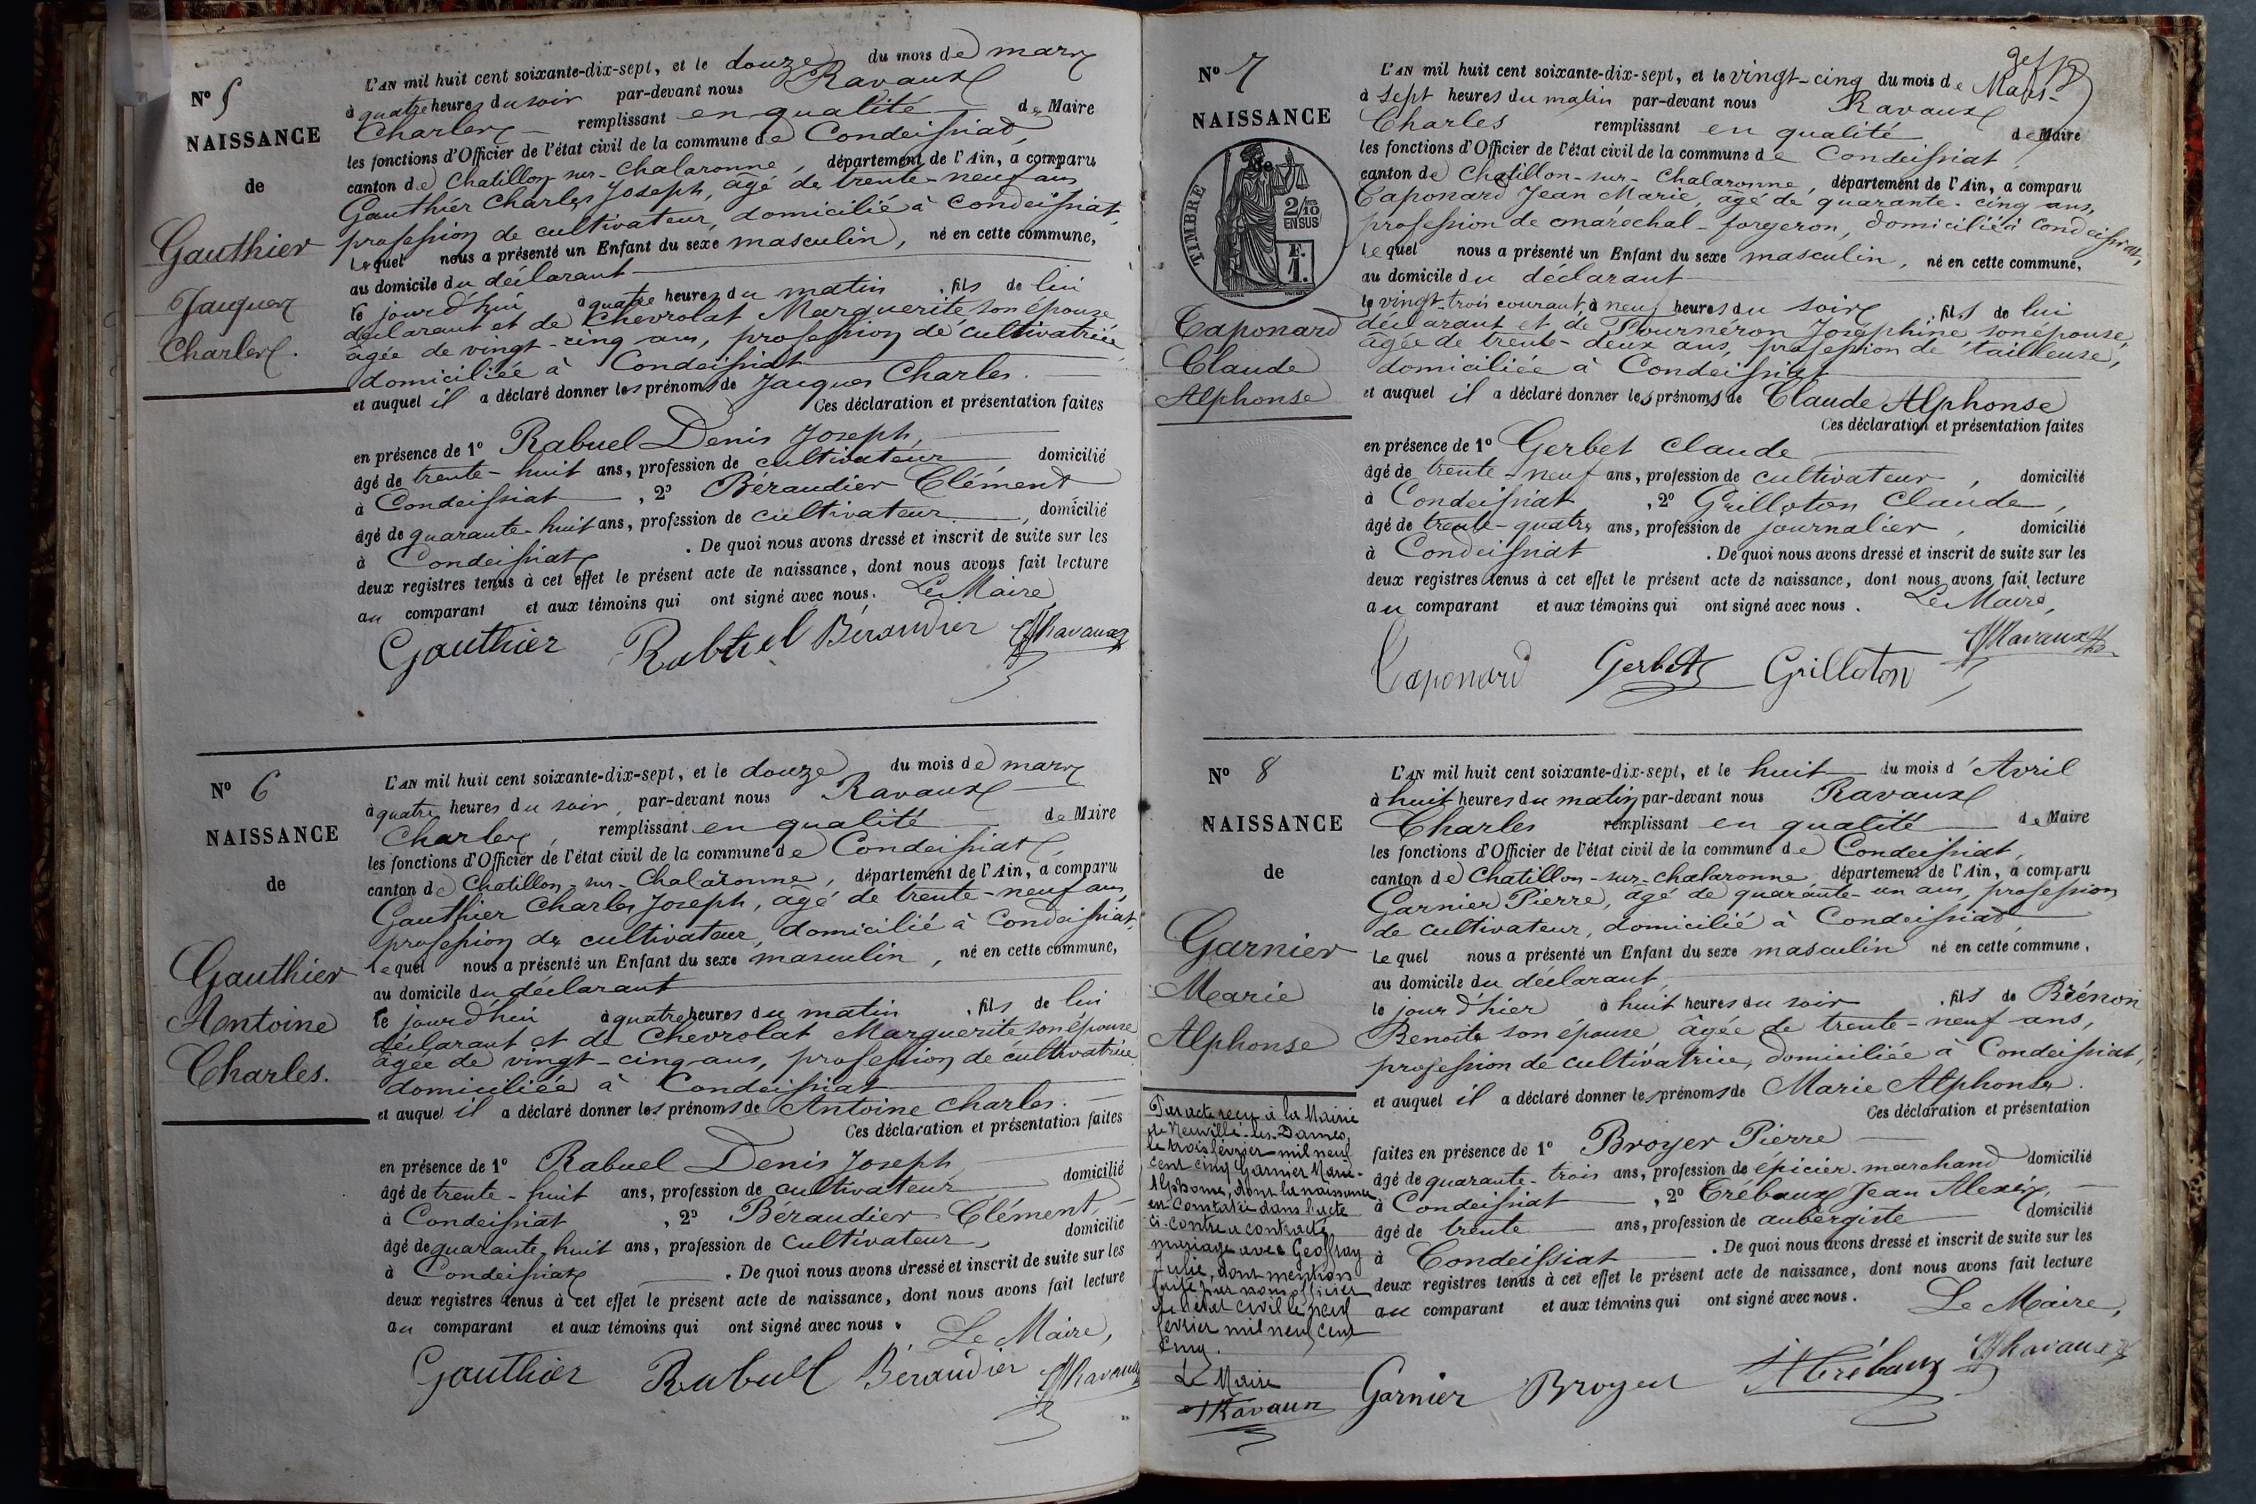 N° 5
NAISSANCE
de
Gauthier
Jacques
Charles.
L'AN mil huit cent soixante-dix-sept, et le douze du mois de mars
à quatre heures du soir par-devant nous Ravaux
Charles remplissant en qualité de Maire
les fonctions d'Officier de l'état civil de la commune de Condeissiat
canton de Chatillon-sur-Chalaronne, département de l'Ain, a comparu
Gauthier Charles Joseph, âgé de trente-neuf ans
profession de cultivateur, domicilié à Condeissiat,
Lequel nous a présenté un Enfant du sexe masculin, né en cette commune,
au domicile du déclarant
le jourd'hui à quatre heures du matin, fils de lui
déclarant et de Chevrolat Marguerite son épouse
âgée de vingt-cinq ans, profession de cultivatrice,
domiciliée à Condeissiat
et auquel il a déclaré donner les prénoms de Jacques Charles.
Ces déclaration et présentation faites
en présence de 1° Rabuel Denis Joseph,
âgé de trente-huit ans, profession de cultivateur domicilié
à Condeissiat, 2° Béraudier Clément
âgé de quarante-huit ans, profession de cultivateur, domicilié
à Condeissiat. De quoi nous avons dressé et inscrit de suite sur les
deux registres tenus à cet effet le présent acte de naissance, dont nous avons fait lecture
au comparant et aux témoins qui ont signé avec nous. Le Maire
Gauthier Rabuel Béraudier Ravaux
N° 6
NAISSANCE
de
Gauthier
Antoine
Charles.
L'AN mil huit cent soixante-dix-sept, et le douze du mois de mars
à quatre heures du soir par-devant nous Ravaux
Charles, remplissant en qualité de Maire
les fonctions d'Officier de l'état civil de la commune de Condeissiat
canton de Chatillon-sur-Chalaronne, département de l'Ain, a comparu
Gauthier Charles Joseph, âgé de trente-neuf ans,
profession de cultivateur, domicilié à Condeissiat,
lequel nous a présenté un Enfant du sexe masculin, né en cette commune,
au domicile du déclarant
le jourd'hui à quatre heures du matin, fils de lui
déclarant et de Chevrolat Marguerite son épouse
âgée de vingt-cinq ans, profession de cultivatrice
domiciliée à Condeissiat
et auquel il a déclaré donner les prénoms de Antoine Charles.
Ces déclaration et présentation faites
en présence de 1° Rabuel Denis Joseph
âgé de trente-huit ans, profession de cultivateur domicilié
à Condeissiat, 2° Béraudier Clément,
âgé de quarante-huit ans, profession de cultivateur, domicilié
à Condeissiat. De quoi nous avons dressé et inscrit de suite sur les
deux registres tenus à cet effet le présent acte de naissance, dont nous avons fait lecture
au comparant et aux témoins qui ont signé avec nous. Le Maire,
Gauthier Rabuel Béraudier Ravaux
N° 7
NAISSANCE
TIMBRE
2/10
EN SUS
F.
1.
Caponard
Claude
Alphonse
L'AN mil huit cent soixante-dix-sept, et le vingt-cinq du mois de Mars
à sept heures du matin par-devant nous Ravaux
Charles remplissant en qualité de Maire
les fonctions d'Officier de l'état civil de la commune de Condeissiat,
canton de Chatillon-sur-Chalaronne, département de l'Ain, a comparu
Caponard Jean Marie, âgé de quarante-cinq ans,
profession de maréchal-forgeron, domicilié à Condeissiat,
Lequel nous a présenté un Enfant du sexe masculin, né en cette commune,
au domicile du déclarant
le vingt-trois courant, à neuf heures du soir, fils de lui
déclarant et de Journeron Joséphine son épouse,
âgée de trente-deux ans, profession de tailleuse,
domiciliée à Condeissiat
et auquel il a déclaré donner les prénoms de Claude Alphonse
Ces déclaration et présentation faites
en présence de 1° Gerbet Claude
âgé de trente-neuf ans, profession de cultivateur, domicilié
à Condeissiat, 2° Grilloton Claude,
âgé de trente-quatre ans, profession de journalier, domicilié
à Condeissiat. De quoi nous avons dressé et inscrit de suite sur les
deux registres tenus à cet effet le présent acte de naissance, dont nous avons fait lecture
au comparant et aux témoins qui ont signé avec nous. Le Maire,
Caponard Gerbet Grilloton Ravaux
N° 8
NAISSANCE
de
Garnier
Marie
Alphonse
L'AN mil huit cent soixante-dix-sept, et le huit du mois d'Avril
à huit heures du matin par-devant nous Ravaux
Charles remplissant en qualité de Maire
les fonctions d'Officier de l'état civil de la commune de Condeissiat,
canton de Chatillon-sur-chalaronne département de l'Ain, a comparu
Garnier Pierre, âgé de quarante-un ans, profession
de cultivateur, domicilié à Condeissiat
Lequel nous a présenté un Enfant du sexe masculin né en cette commune,
au domicile du déclarant
le jour d'hier à huit heures du soir, fils de Brénon
Benoite son épouse âgée de trente-neuf ans,
profession de cultivatrice, domiciliée à Condeissiat,
et auquel il a déclaré donner les prénoms de Marie Alphonse.
Ces déclaration et présentation
faites en présence de 1° Broyer Pierre
âgé de quarante-trois ans, profession de épicier-marchand domicilié
à Condeissiat, 2° Trébaux Jean Alexis,
âgé de trente ans, profession de aubergiste domicilié
à Condeissiat. De quoi nous avons dressé et inscrit de suite sur les
deux registres tenus à cet effet le présent acte de naissance, dont nous avons fait lecture
au comparant et aux témoins qui ont signé avec nous. Le Maire,
Garnier Broyer Trébaux Ravaux
Par acte reçu à la Mairie
de Neuville-les-Dames,
le trois février mil neuf
cent cinq Garnier Marie-
Alphonse, dont la naissance
est constatée dans l'acte
ci-contre a contracté
mariage avec Geoffray
Julie, dont mention
faite par nous officier
de l'état civil le neuf
février mil neuf cent
cinq.
Le Maire
Ravaux